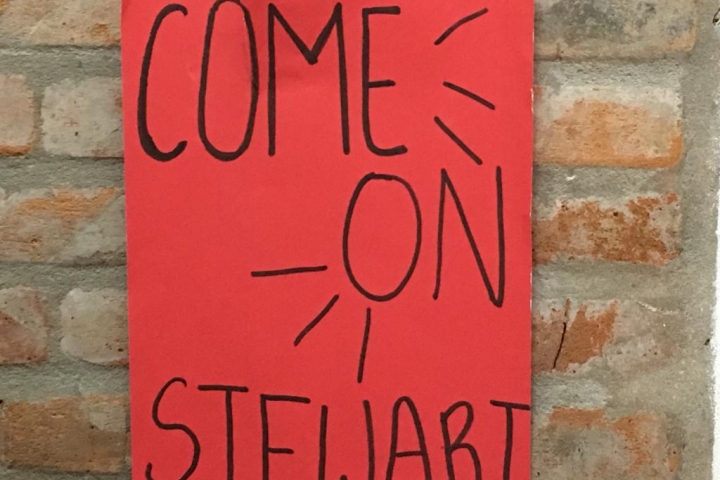 COME
ON
STEWART